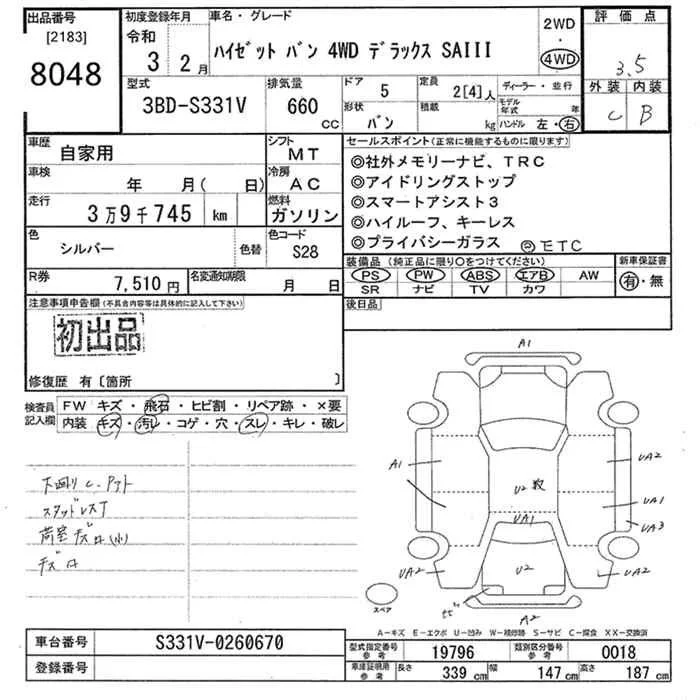 出品番号
[2183]
8048
初度登録年月
令和
3 2月
車名・グレード
ハイゼット バン 4WD デラックス SAIII
2WD
・
4WD
評価点
3.5
外装 内装
C B
型式
3BD-S331V
排気量
660
CC
ドア
5
定員
2[4]人
形状
バン
積載
kg
ディーラー・並行
モデル年式 年
ハンドル 左・右
車歴
自家用
シフト
MT
車検
年 月( 日)
冷房
AC
走行
3万9千745 km
燃料
ガソリン
色
シルバー
色替
色コード
S28
R券
7,510円
名変通知期限
月 日
セールスポイント(正常に機能するものに限ります)
◎社外メモリーナビ、TRC
◎アイドリングストップ
◎スマートアシスト3
◎ハイルーフ、キーレス
◎プライバシーガラス
◎ETC
装備品(純正品に限り○をつけてください)
PS PW ABS エアB AW
SR ナビ TV カワ
新車保証書
有・無
注意事項申告欄(不具合内容等は具体的に記入して下さい)
初出品
修復歴 有〔箇所 〕
後日品
検査員記入欄
FW キズ・飛石・ヒビ割・リペア跡・×要
内装 キズ・汚レ・コゲ・穴・スレ・キレ・破レ
下回りC、アト
スタッドレス
A1
A1
U2
UA1
U2
UA2
UA1
UA3
UA2
UA2
A2
スペア
A－キズ E－エクボ U－凹み W－補修跡 S－サビ C－腐食 XX－交換済
車台番号
S331V-0260670
登録番号
型式指定番号
参考
19796
類別区分番号
参考
0018
車庫証明用
参考
長さ 339 cm 幅 147 cm 高さ 187 cm